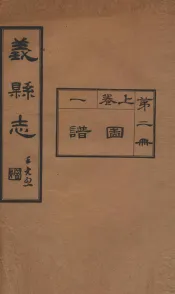 義縣志
第二冊
上卷
圖
一
譜